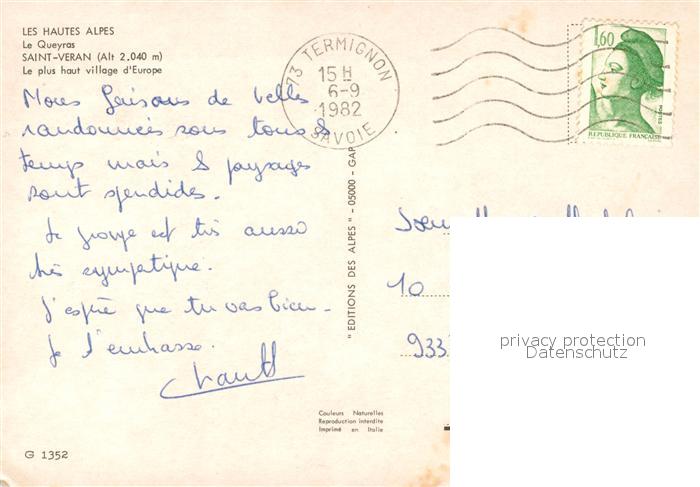 LES HAUTES ALPES
Le Queyras
SAINT-VERAN (Alt 2.040 m)
Le plus haut village d'Europe
Nous faisons de belles
randonnées sous tous les
temps mais les paysages
sont splendides.
Le groupe est très aussi
très sympatique.
J'espère que tu vas bien.
Je t'embrasse.
G 1352
73 TERMIGNON
15 H
6-9
1982
SAVOIE
"EDITIONS DES ALPES" - 05000 - GAP
Couleurs Naturelles
Reproduction interdite
Imprimé en Italie
1,60
POSTES
REPUBLIQUE FRANÇAISE
10
933
privacy protection
Datenschutz